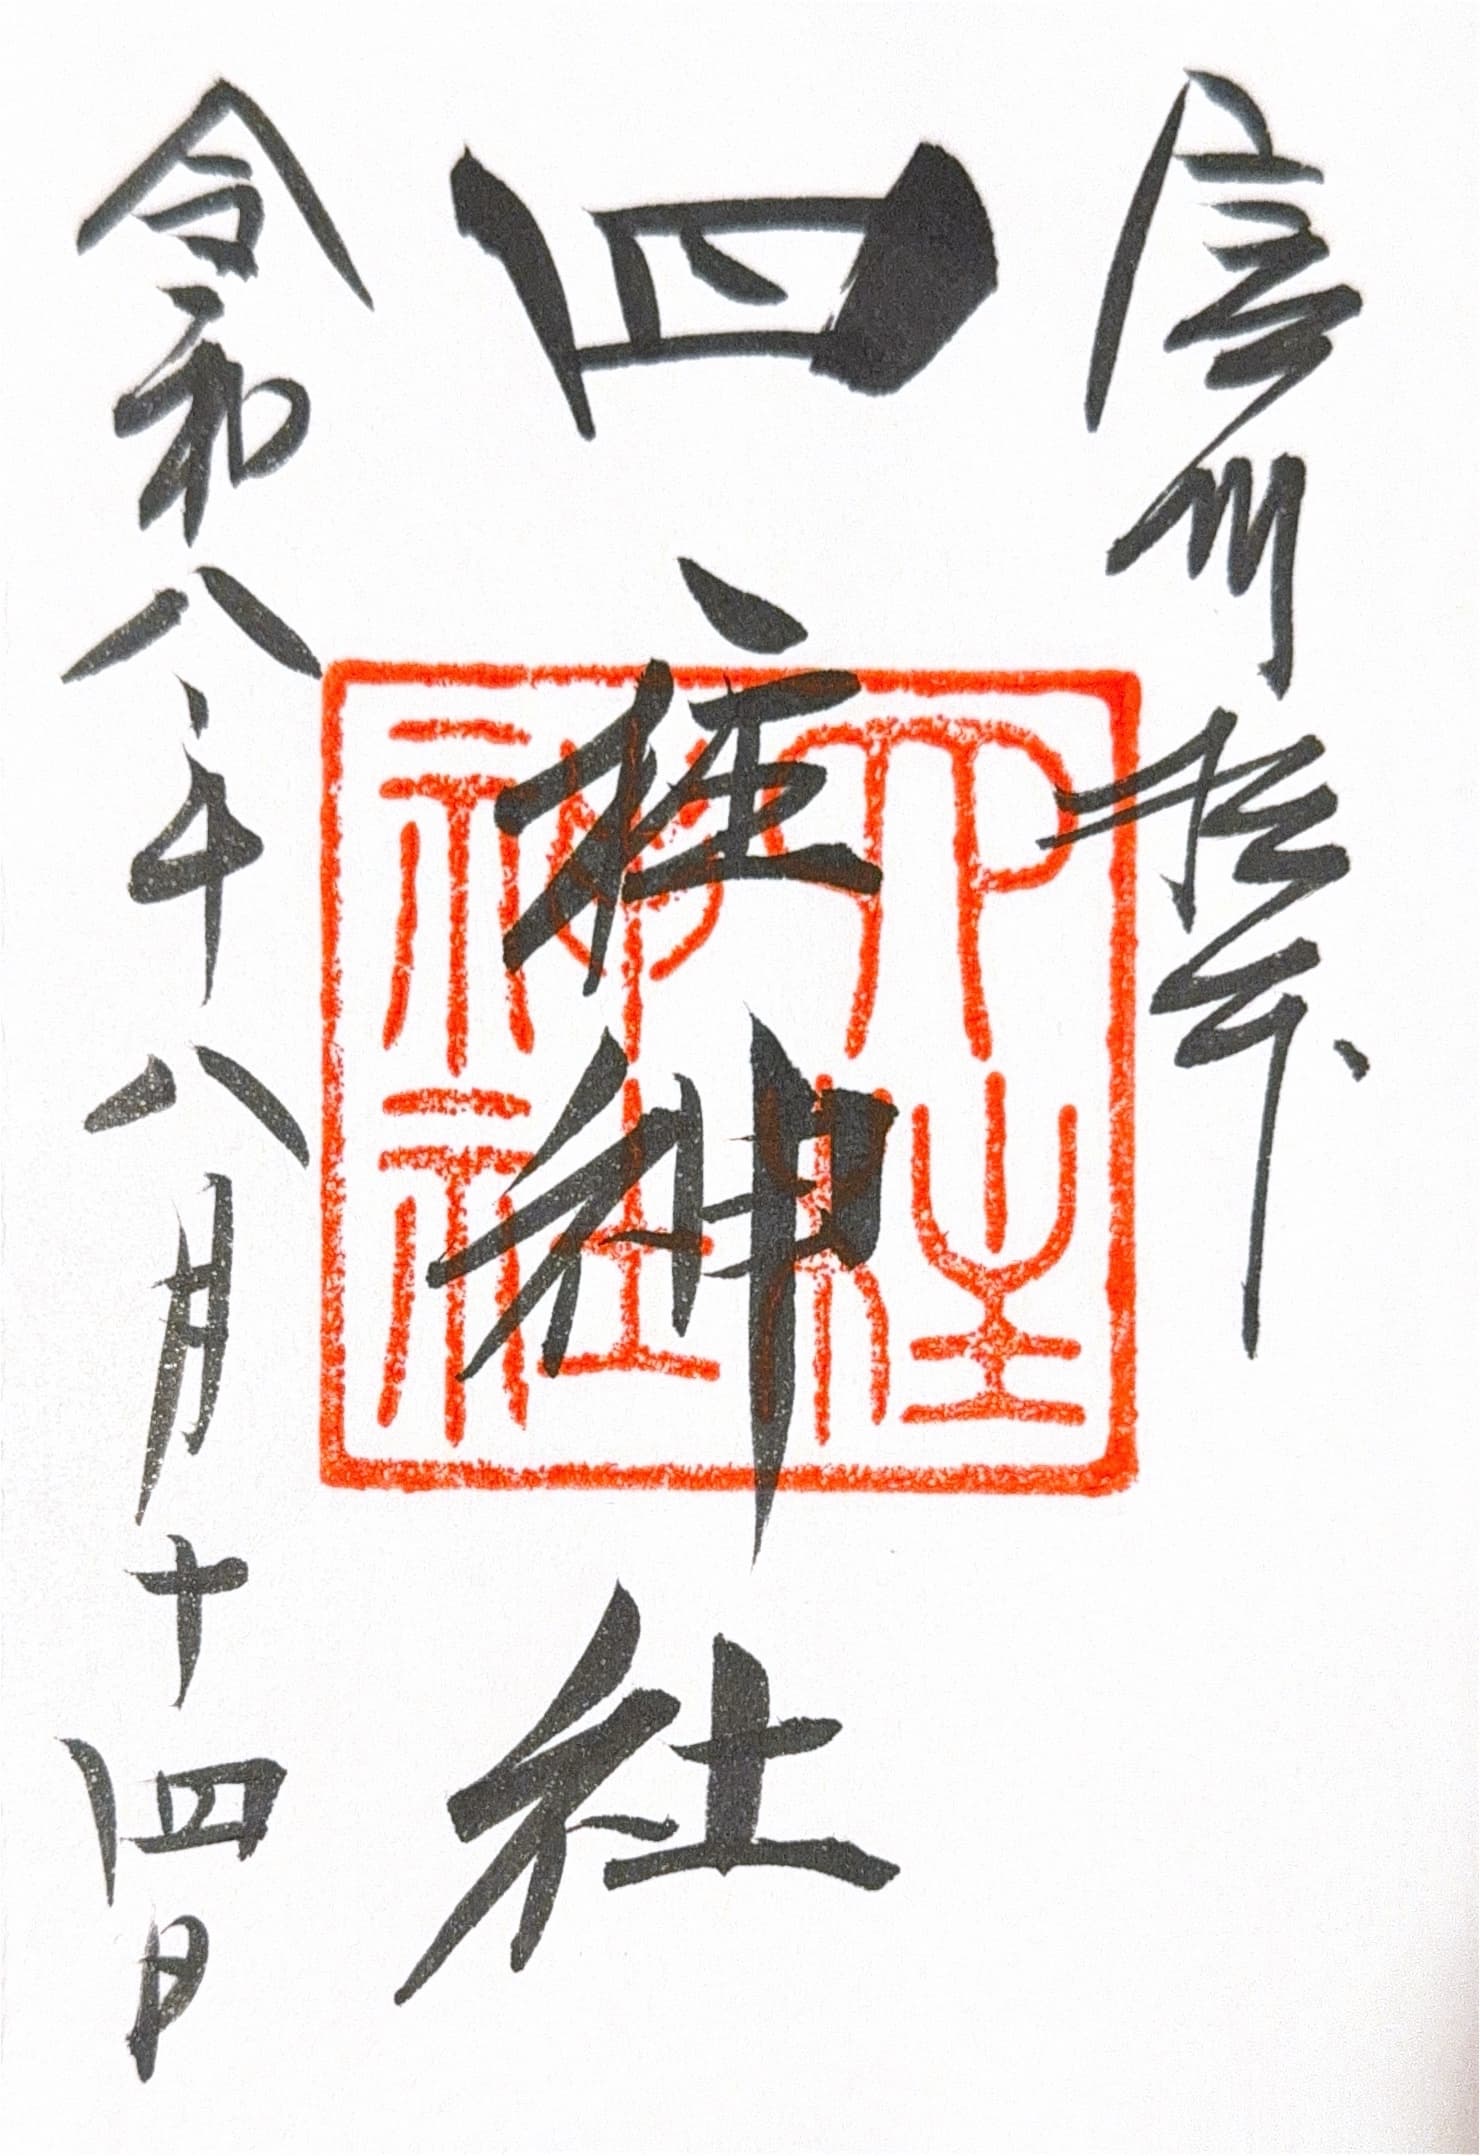 信州松本
四柱神社
四柱神社
令和八年八月十四日